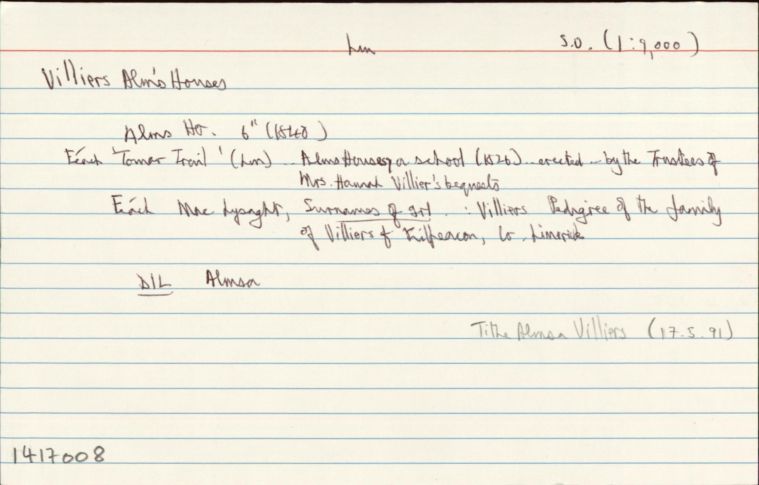 Lm S.O. (1:9,000)
Villiers Alms Houses
Alms Ho. 6" (1840)
Féach 'Tomar Trail' (Lm) .. Alms Houses, a school (1826) .. erected .. by the Trustees of
Mrs. Hannah Villier's bequests
Féach Mac Lysaght, Surnames of Irl. : Villiers Pedigree of the family
of Villiers of Kilpeacon, Co. Limerick
DIL Almsa
Tithe Almsa Villiers (17.5.91)
1417008